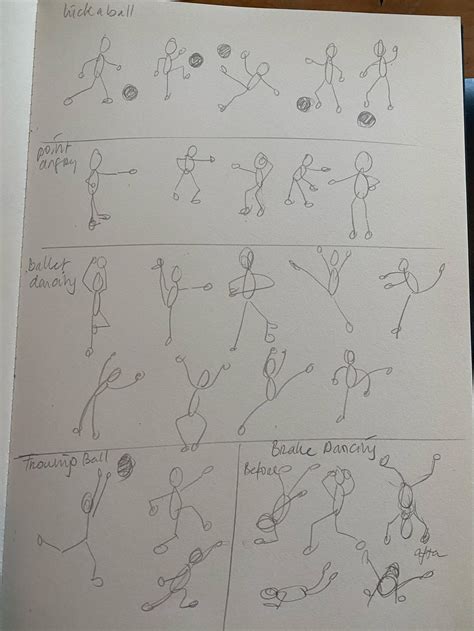 kick a ball
point
angry
Ballet
dancing
Throwing Ball
Brake Dancing
Before
after